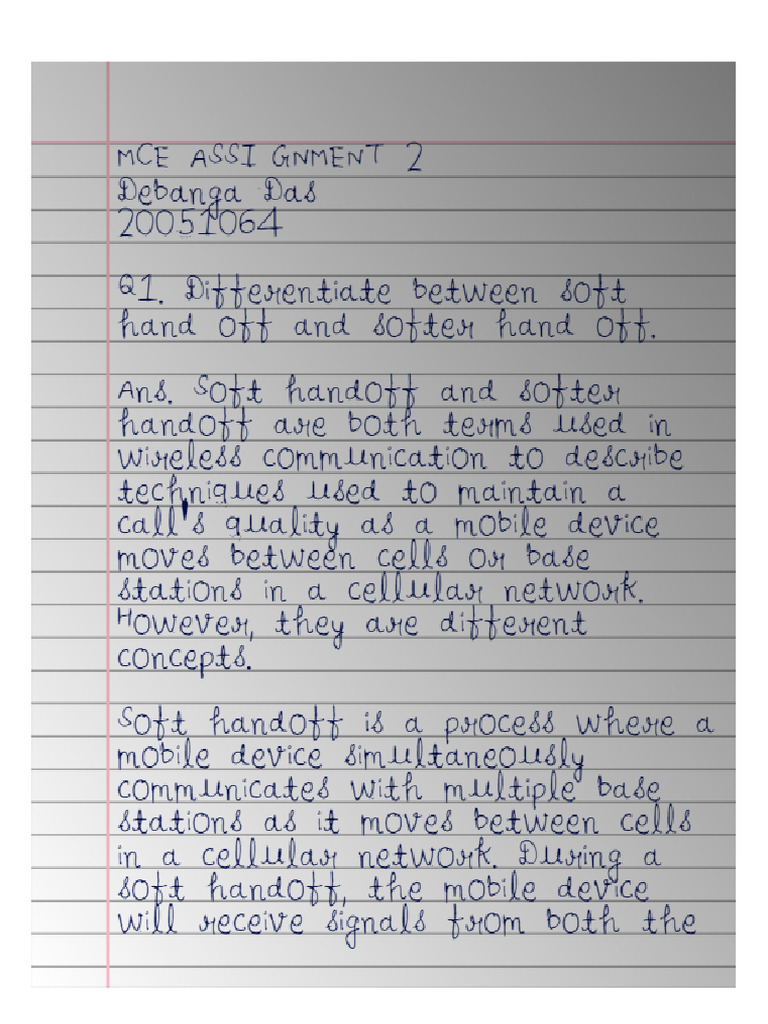 MCE ASSIGNMENT 2
Debanga Das
20051064
Q1. Differentiate between soft
hand off and softer hand off.
Ans. Soft handoff and softer
handoff are both terms used in
wireless communication to describe
techniques used to maintain a
call's quality as a mobile device
moves between cells or base
stations in a cellular network.
However, they are different
concepts.
Soft handoff is a process where a
mobile device simultaneously
communicates with multiple base
stations as it moves between cells
in a cellular network. During a
soft handoff, the mobile device
will receive signals from both the